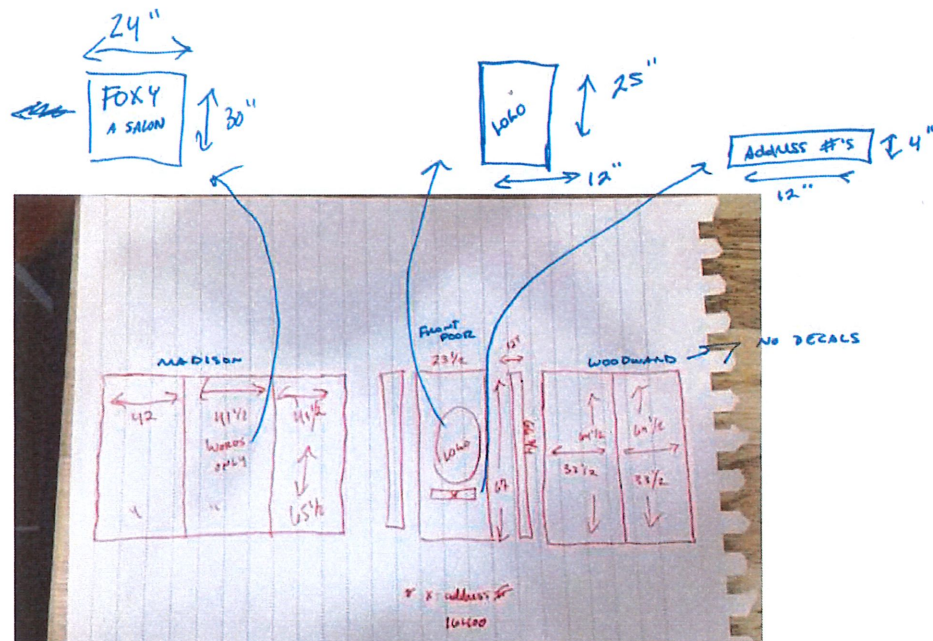 24"
FOXY
A SALON
30"
LOGO
25"
12"
ADDRESS #'S
4"
12"
MADISON
42
41 1/2
WORDS
ONLY
41 1/2
65 1/2
"
"
FRONT
DOOR
23 1/2
12"
LOGO
x
67
WOODWARD
NO DECALS
64 1/2
33 1/2
64 1/2
33 1/2
x address #
16600